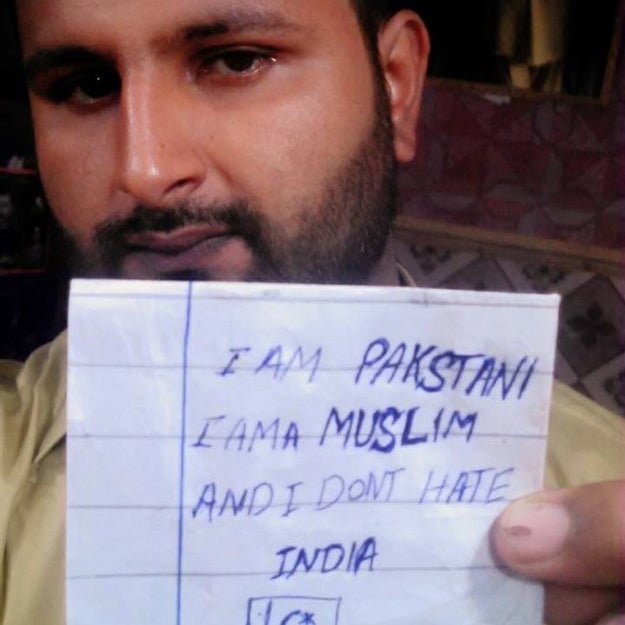 I AM PAKSTANI
I AM A MUSLIM
AND I DONT HATE
INDIA